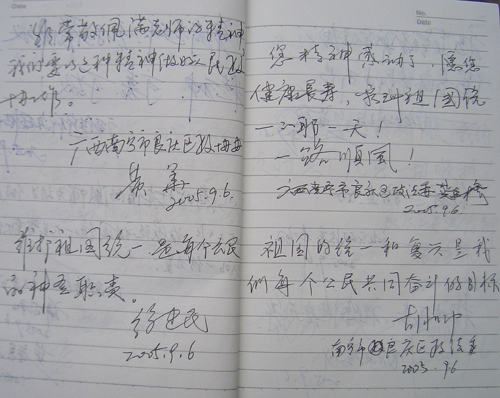 非常敬佩满老师的精神
我们要以这种精神做好人民政
协工作。
广西南宁市良庆区政协委
黄
2005.9.6.
维护祖国统一是每个公民
的神圣职责。
2005.9.6
No.
Date
您精神感动了，愿您
健康长寿，亲到祖国统
一那一天！
一路顺风！
广西南宁市良庆区政法委
2005.9.6
祖国的统一和复兴是我
们每个公民共同奋斗的目标
南宁市良庆区政法委
2005.9.6